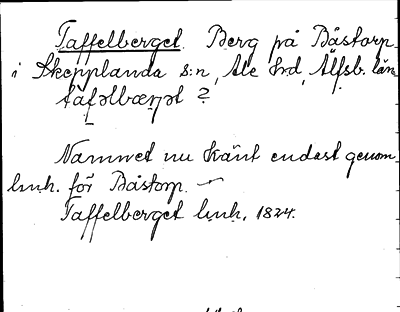 Taffelberget. Berg på Båstorp
i Skepplanda s:n, Ale hrd, Älfsb. län
tàfəlbærjət ?
Namnet nu känt endast genom
lmh. för Båstorp.
Taffelberget lmh. 1824.